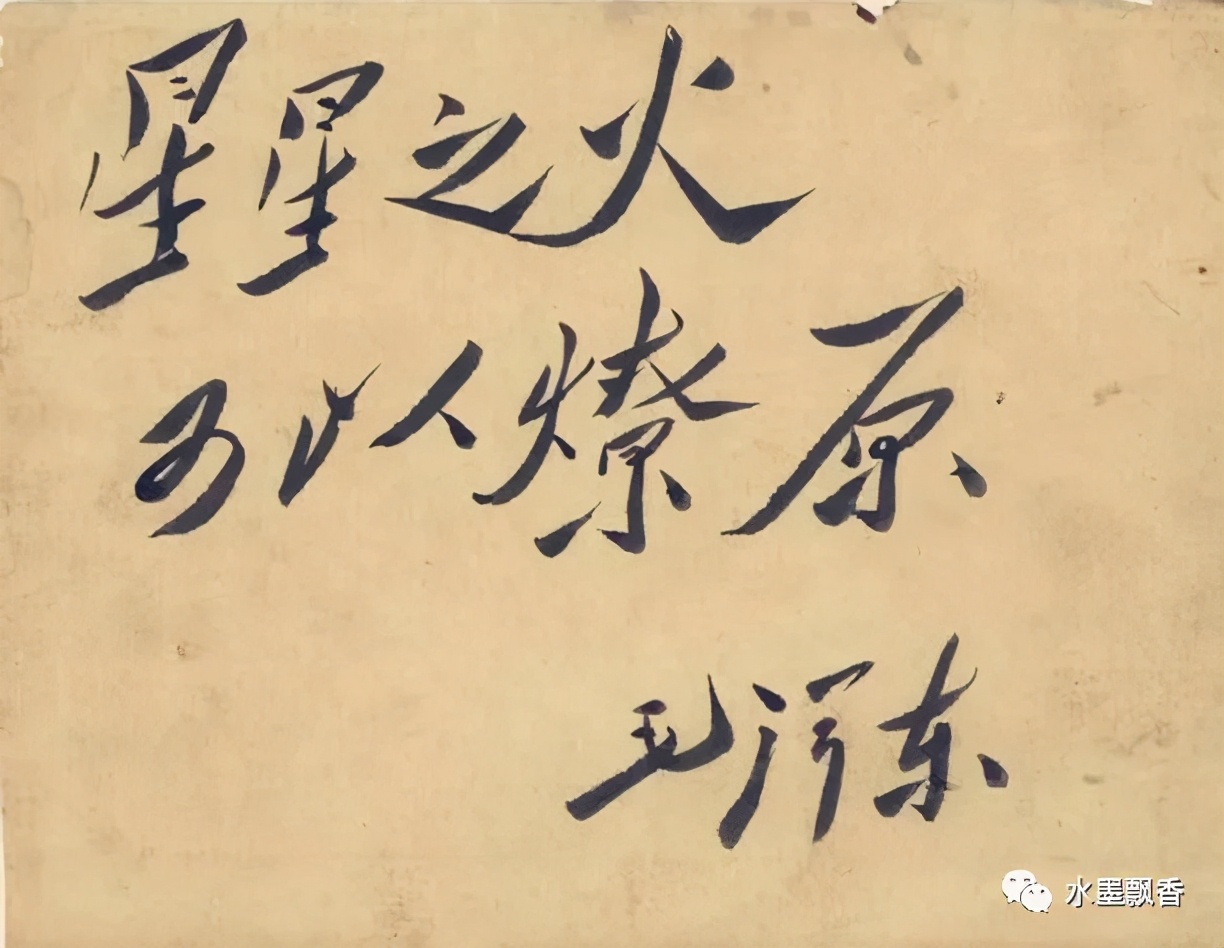 星星之火
可以燎原
毛泽东
水墨飘香